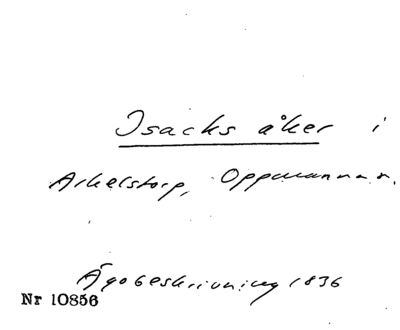 Isacks åker i
Arkelstorp, Oppmanna s.
Ägobeskrivning 1836
Nr 10856